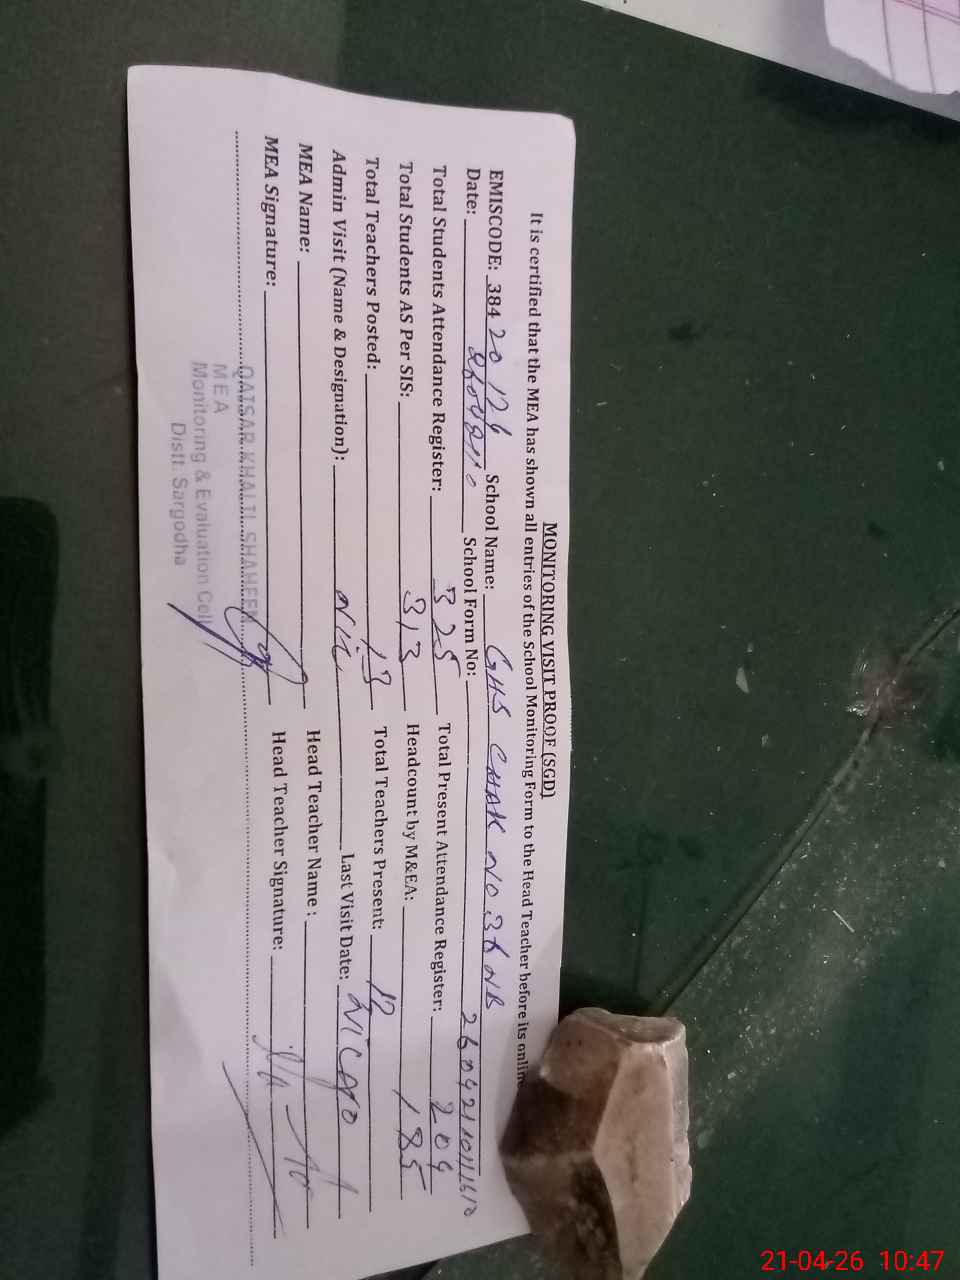 MONITORING VISIT PROOF (SGD)
It is certified that the MEA has shown all entries of the School Monitoring Form to the Head Teacher before its onlin
EMISCODE: 384 20 124 School Name: GHS CHAK NO 36 NB
Date: School Form No: 260421101116
Total Students Attendance Register: 325 Total Present Attendance Register: 204
Total Students AS Per SIS: 313 Headcount by M&EA: 185
Total Teachers Posted: 13 Total Teachers Present: 12
Admin Visit (Name & Designation): NIL Last Visit Date:
MEA Name: Head Teacher Name:
MEA Signature: Head Teacher Signature:
QAISAR KHALTI SHAHEEN
MEA
Monitoring & Evaluation Cell
Distt. Sargodha
21-04-26 10:47